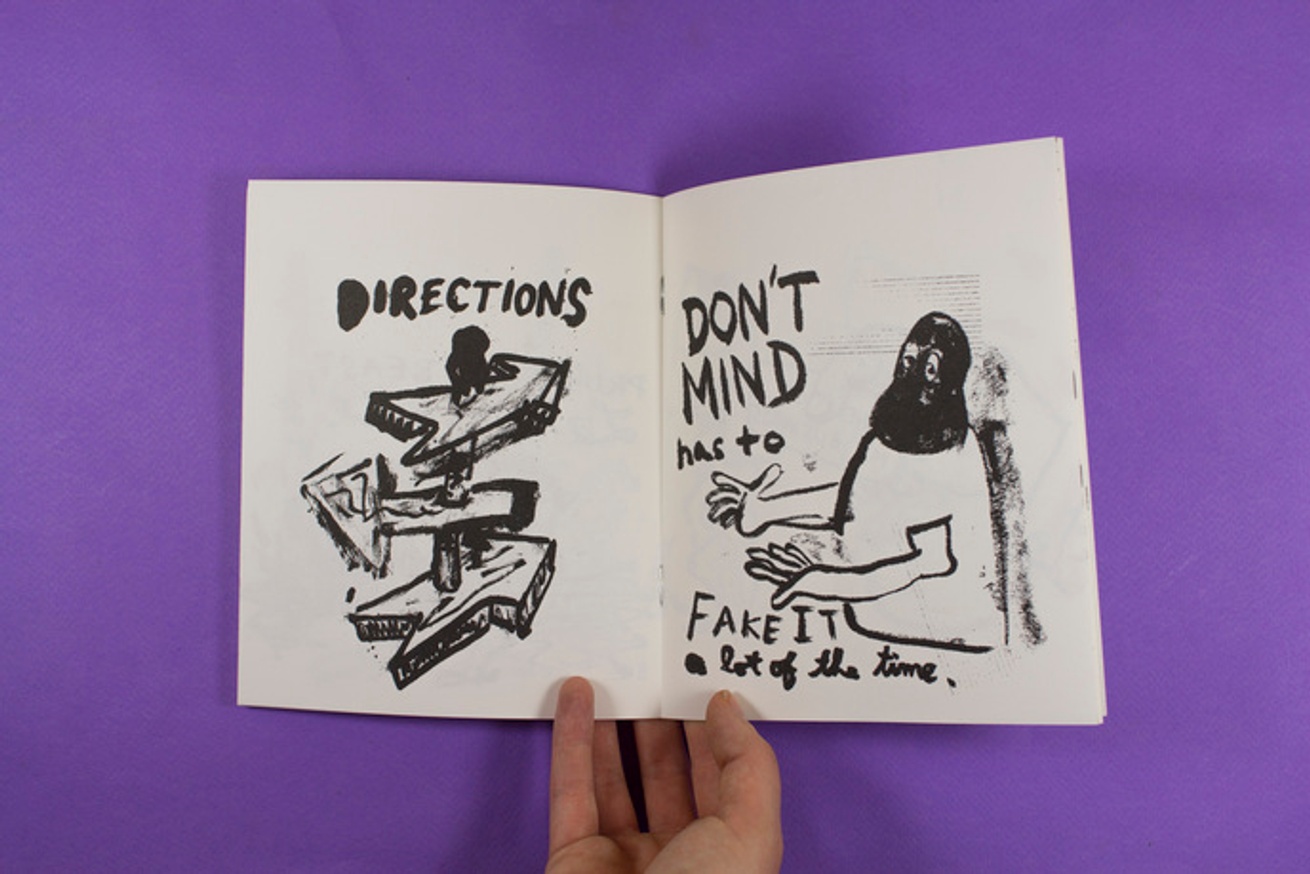 DIRECTIONS
DON'T
MIND
has to
FAKE IT
a lot of the time.